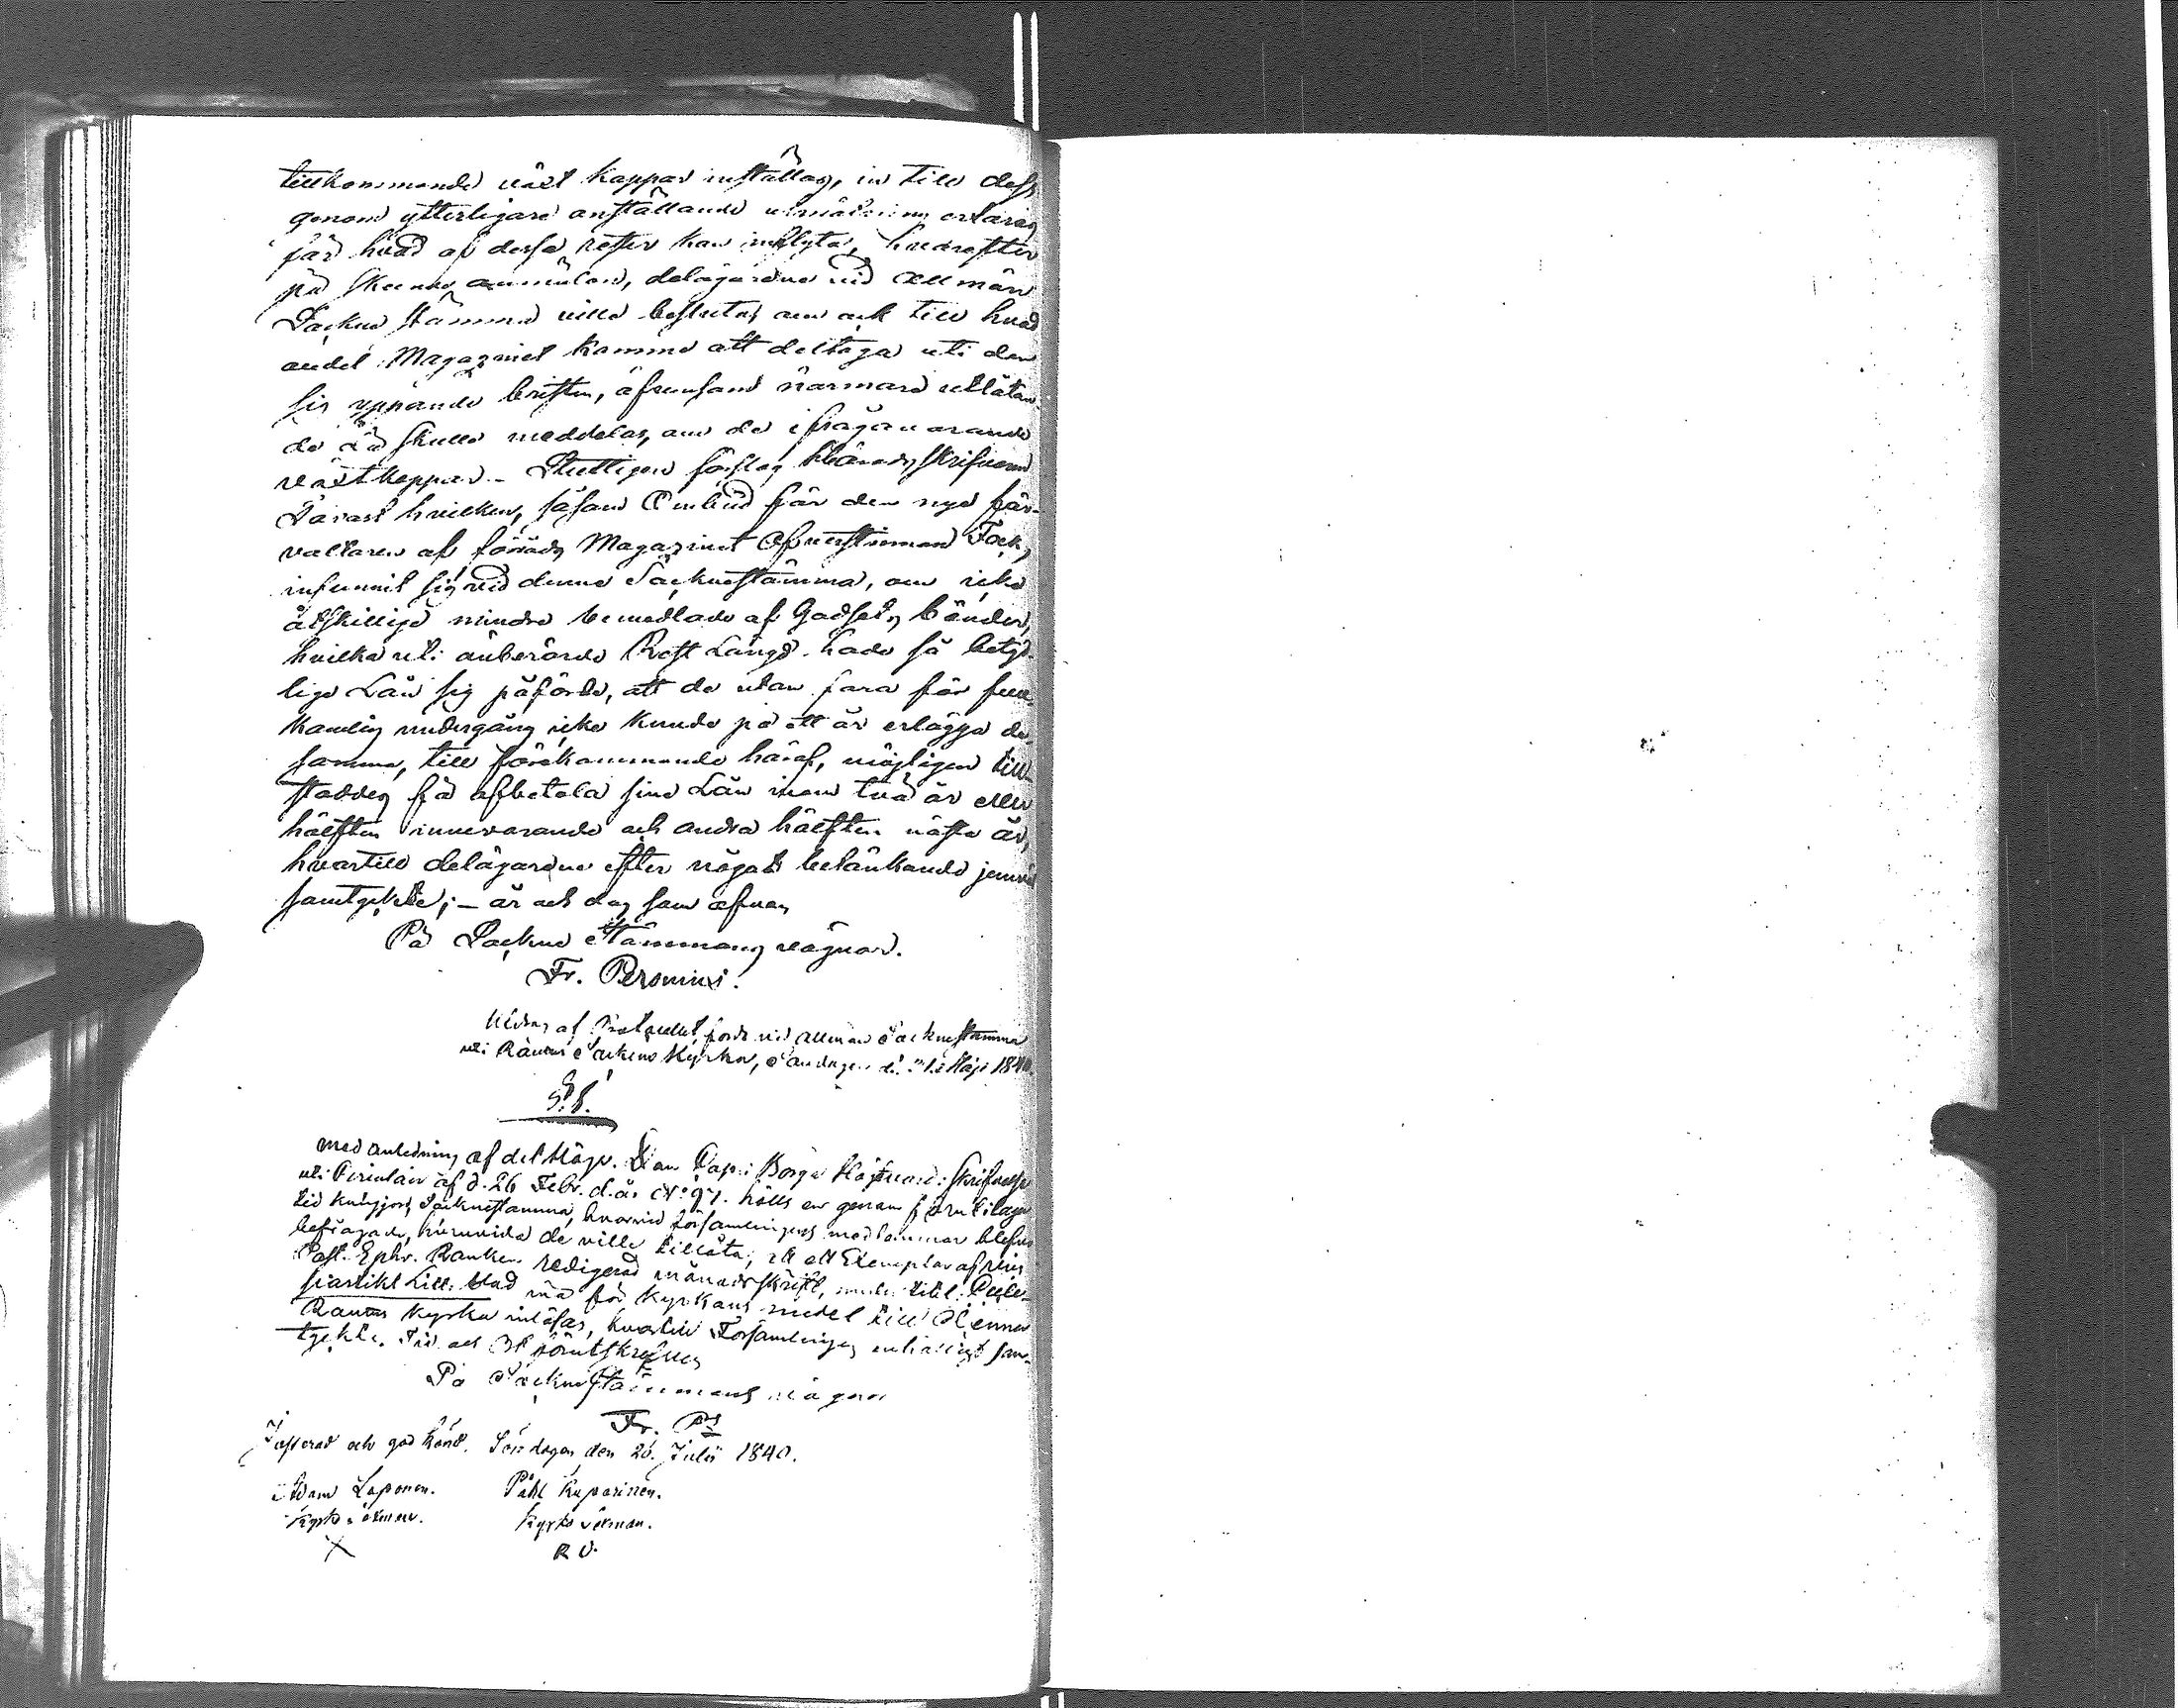 tillkommande växt kappar inställas, in till dess
genom ytterligare anställande utmätning erfaras
får hvad af dessa rester kan inflyta, hvarefter
på skeende anmälan, delägarene vid allmän
Sockne stämma ville besluta, om och till hvad
andel Magazinet komme att deltaga uti den
sig yppande bristen, äfvensom närmare utlåtan-
de då skulle meddelas, om de ifrågavarande
växtkappar. - Slutligen föreslog Häradsskrifvaren
hvilken, såsom Ombud för den nye för-
valtaren af förråds Magazinet Öfverstinnan Fock,
infunnit sig vid denne Sockenstämma, om icke
åtskillige mindre bemedlade af Godsets bönder,
hvilka uti änberörde Rest Längd hade så betyd-
lige Lån sig påförde, att de utan fara för full-
komlig undergång icke kunde på ett år erlägga de-
samma, till förekommande häraf, möjligen till-
staddes få afbetala sine Lån inom två år eller
hälften innevarande och andra hälften nästa år,
hvartill delägarene efter något betänkande jemväl
samtyckte; - år och dag som ofvan
På Sockne Stämmans vägnar.
Fr. Peronius.
Utdrag af Protocollet, fördt vid allmän Sockne stamma
uti Rautus Sockens Kyrka, Söndagen d. Maji 1840.
§.8.
med anledning af det Högv. Dom Cap: i Borgå skrifvelse
uti Circulair af d. 26 Febr. d. år N:o 97. hölls en genom förutilagen
tid kungjord Socknestamma, hvarvid församlingens medlemmar blefvo
befrågade, huruvida de ville tillåta, att ett Exemplar af
Past. Ephr. Ranken redigerad månadsskrift, under titel: Eccle-
siastikt Litt. blad må för Kyrkans medel till
Rautus Kyrka inlösas, hvartill Församlingen enhälligt sam-
tyckte. Tid och Ort förutskrefven
På Socknestämmans vägnar
Fr. Ps
Justerad och god känd. Söndagen den 26. Julii 1840.
Adam Loponen. Påhl Kuparinen.
Kyrkovärman. Kyrkovärman.
X R U.